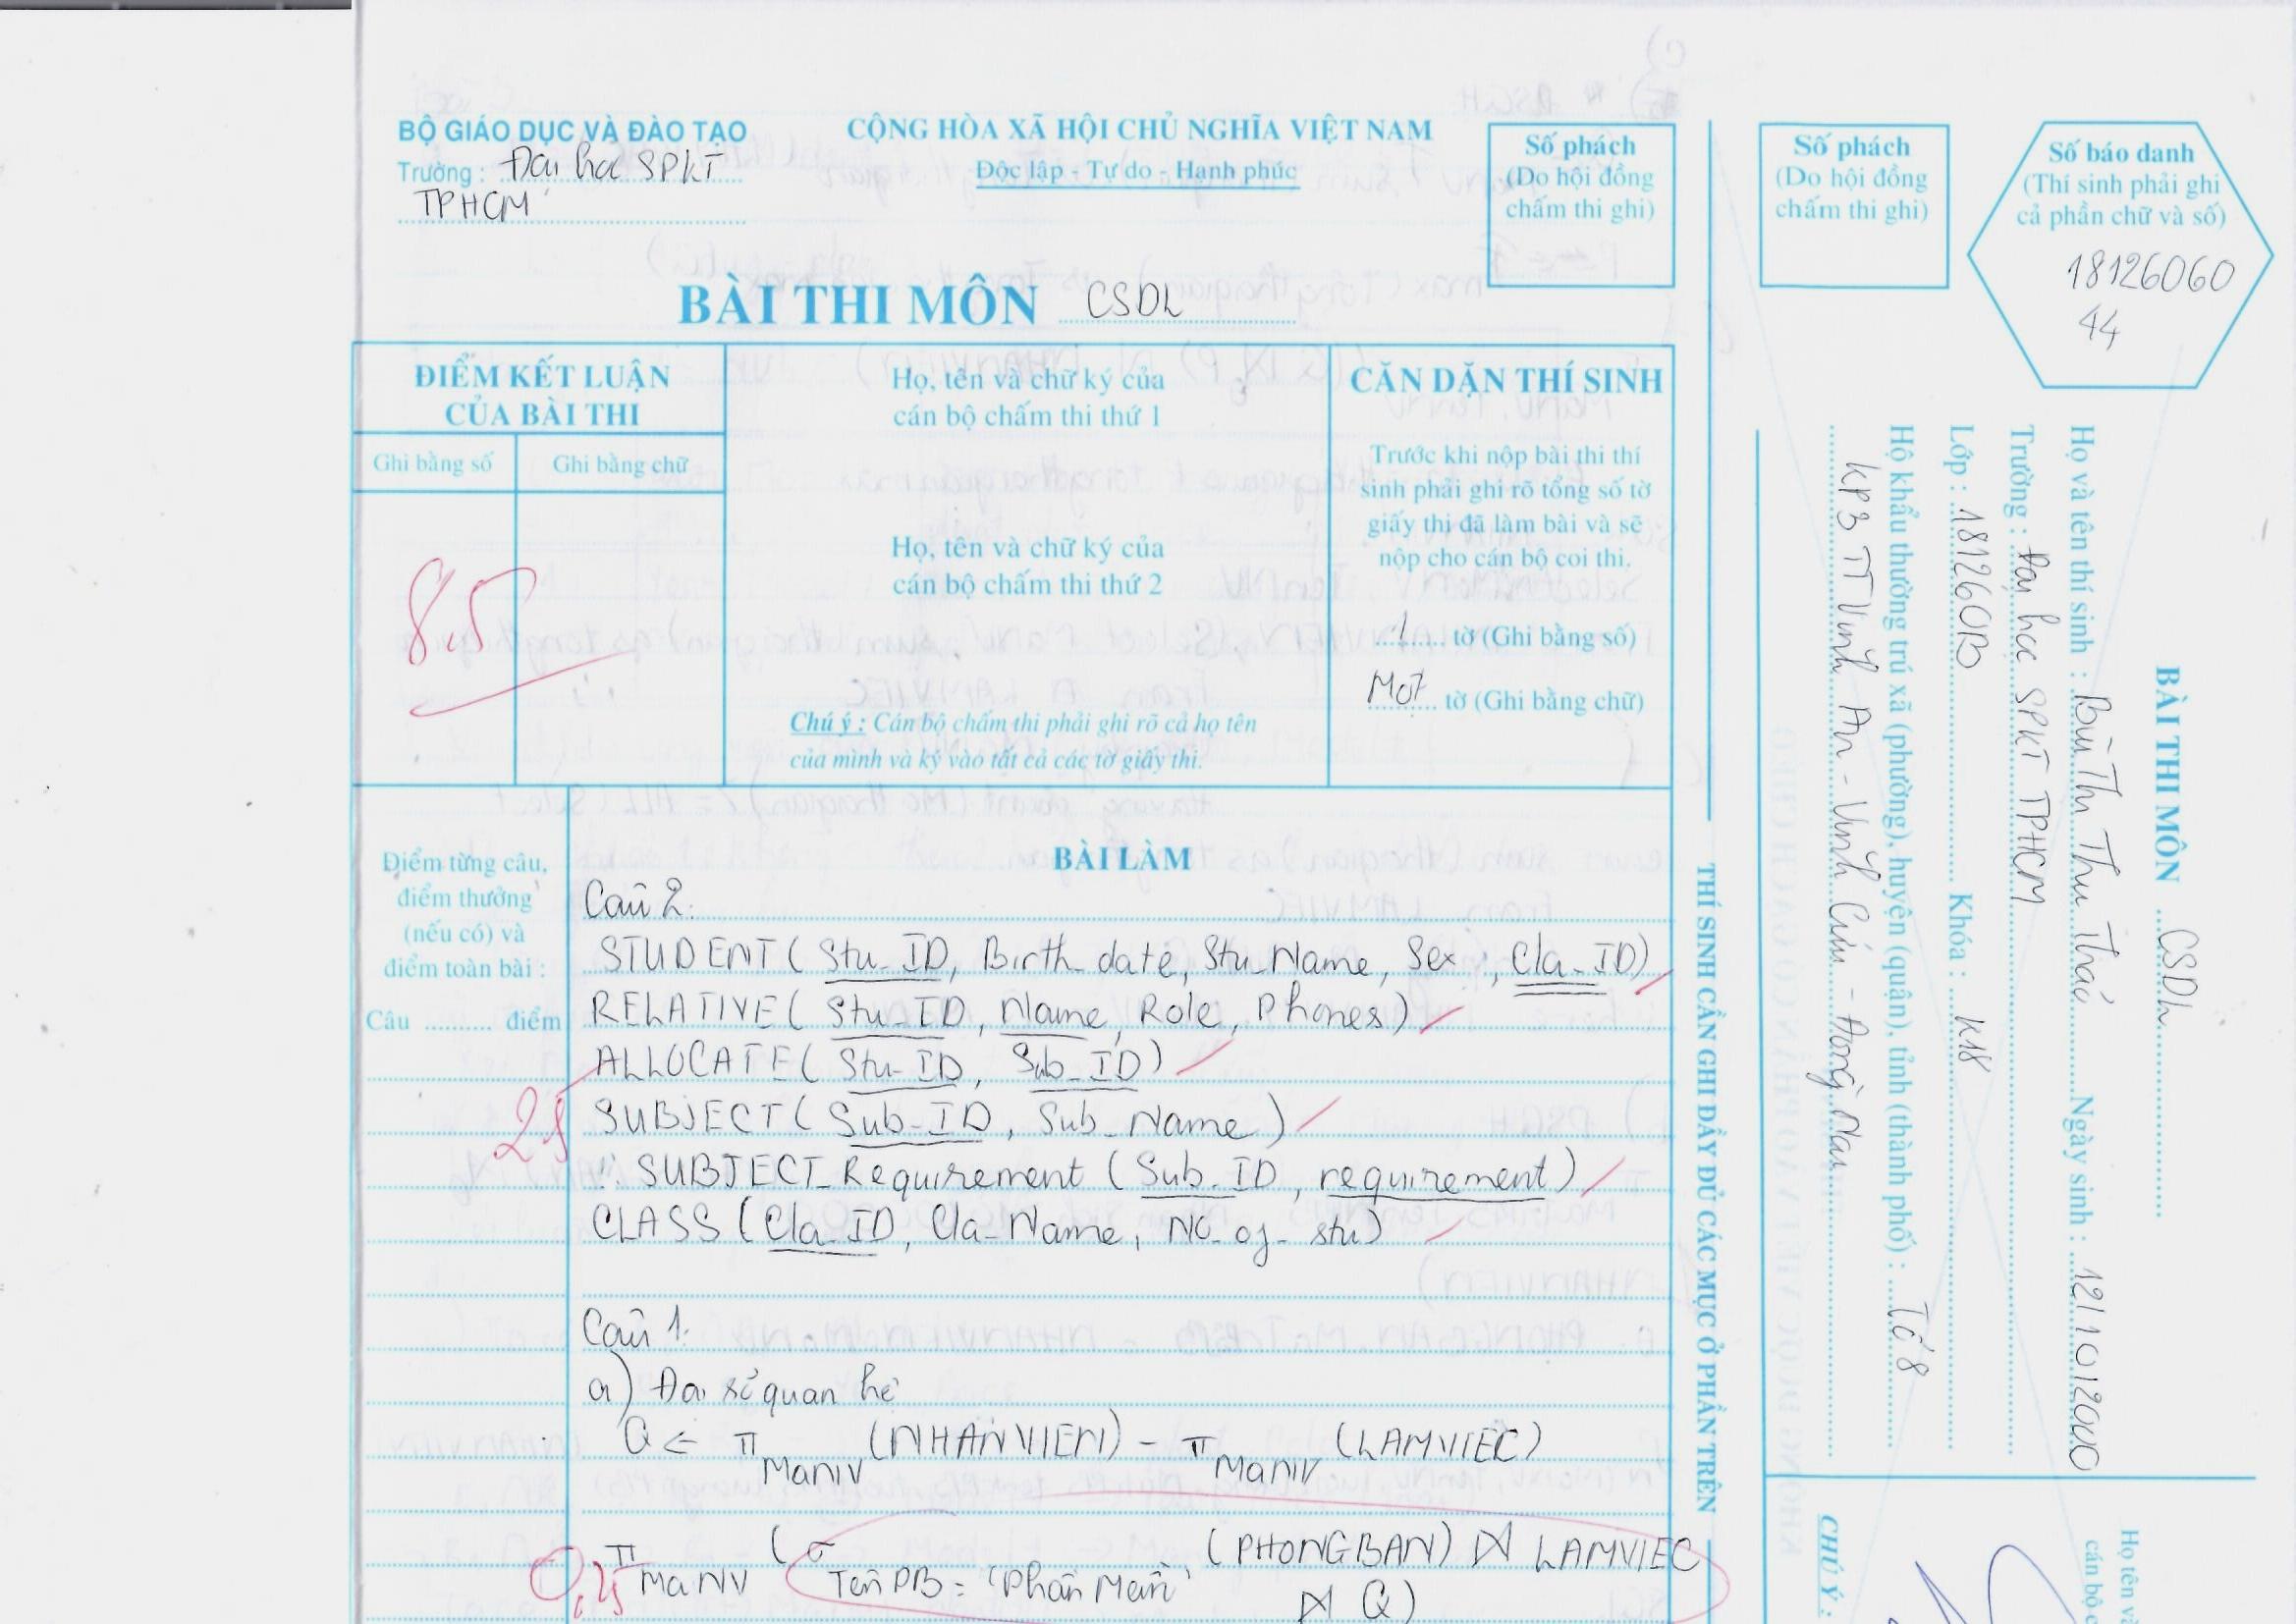 BỘ GIÁO DỤC VÀ ĐÀO TẠO
Trường : Đại học SPKT
TPHCM
CỘNG HÒA XÃ HỘI CHỦ NGHĨA VIỆT NAM
Độc lập - Tự do - Hạnh phúc
Số phách
(Do hội đồng
chấm thi ghi)
BÀI THI MÔN CSDL
ĐIỂM KẾT LUẬN
CỦA BÀI THI
Ghi bằng số
Ghi bằng chữ
8,5
Họ, tên và chữ ký của
cán bộ chấm thi thứ 1
Họ, tên và chữ ký của
cán bộ chấm thi thứ 2
Chú ý : Cán bộ chấm thi phải ghi rõ cả họ tên
của mình và ký vào tất cả các tờ giấy thi.
CĂN DẶN THÍ SINH
Trước khi nộp bài thi thí
sinh phải ghi rõ tổng số tờ
giấy thi đã làm bài và sẽ
nộp cho cán bộ coi thi.
1 tờ (Ghi bằng số)
Một tờ (Ghi bằng chữ)
Điểm từng câu,
điểm thưởng
(nếu có) và
điểm toàn bài :
Câu .......... điểm
BÀI LÀM
Câu 2:
STUDENT( Stu_ID, Birth_date, Stu_Name, Sex, Cla_ID)
RELATIVE( Stu_ID, Name, Role, Phones)
ALLOCATE( Stu_ID, Sub_ID)
SUBJECT( Sub_ID, Sub_Name)
SUBJECT_Requirement ( Sub_ID, requirement)
CLASS (Cla_ID, Cla_Name, NO_of_stu)
Câu 1:
a) Đại số quan hệ
Q ← π MaNV (NHANVIEN) - π MaNV (LAMVIEC)
0,25
π MaNV ( σ TênPB = 'Phần Mềm' (PHONGBAN) ⋈ LAMVIEC
⋈ Q)
THÍ SINH CẦN GHI ĐẦY ĐỦ CÁC MỤC Ở PHẦN TRÊN
Số phách
(Do hội đồng
chấm thi ghi)
Số báo danh
(Thí sinh phải ghi
cả phần chữ và số)
18126060
44
BÀI THI MÔN CSDL
Họ và tên thí sinh : Bùi Thị Thu Thảo Ngày sinh : 12/10/2000
Trường : Đại học SPKT TPHCM
Lớp : 18126OB Khóa : K18
Hộ khẩu thường trú xã (phường), huyện (quận), tỉnh (thành phố) : Tổ 8
KP3 TT Vĩnh An - Vĩnh Cửu - Đồng Nai
CHÚ Ý :
Họ tên và
cán bộ c